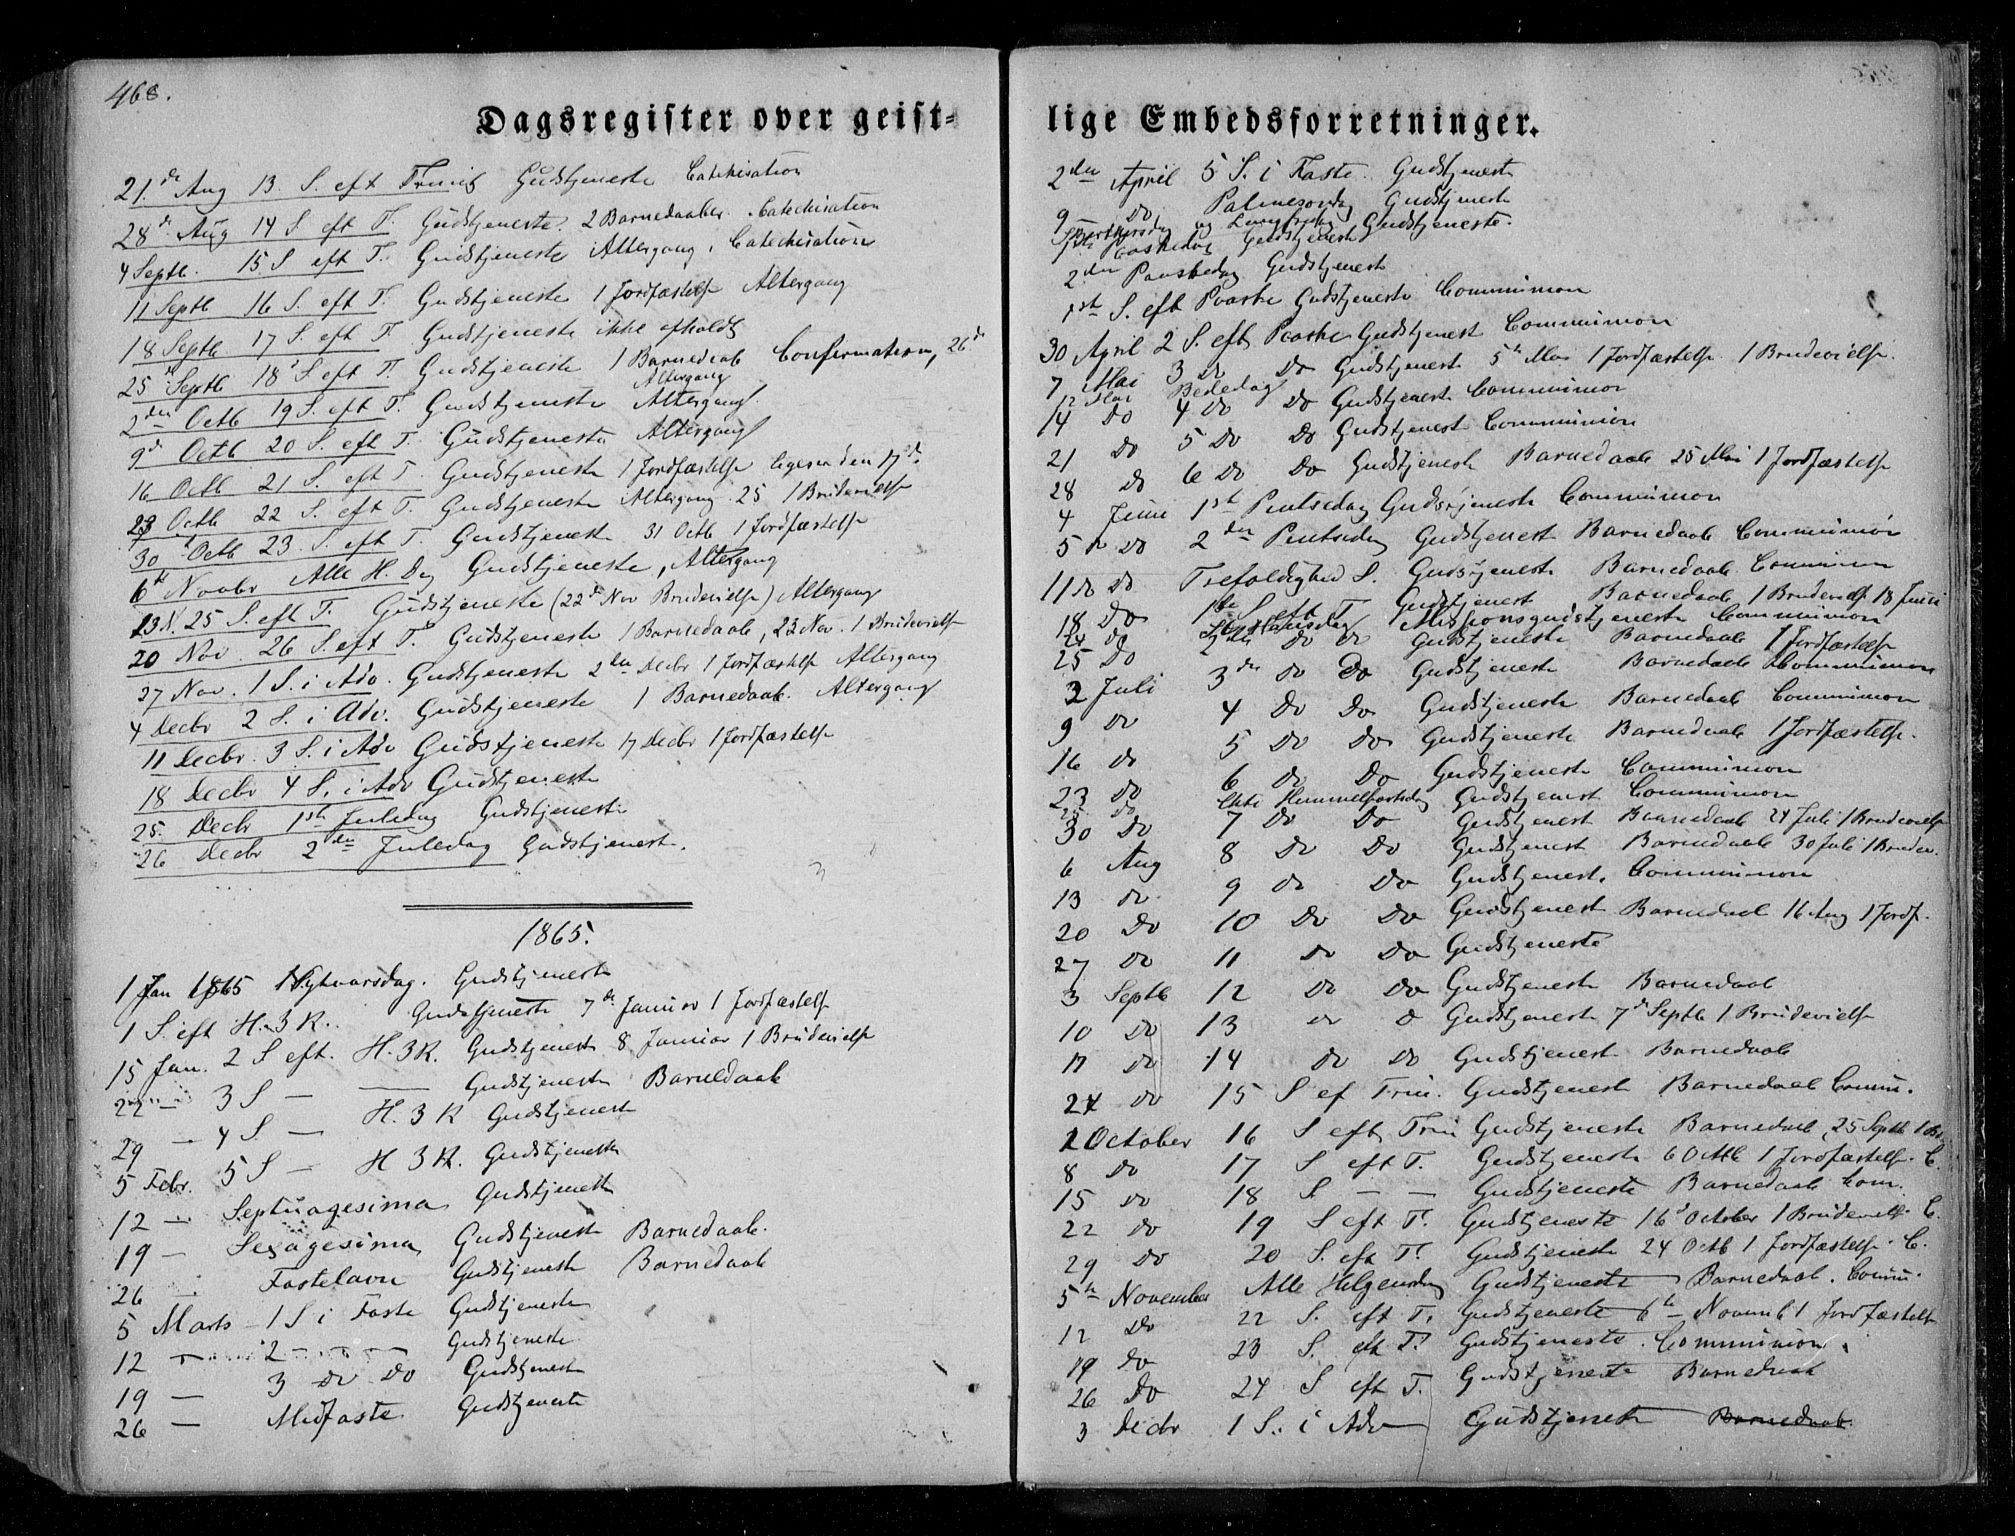 468.
Dagsregister over geist-
21. de Aug 13. S. eft Trinit Gudstjeneste Catechisation
28 de Aug 14 S eft T. Gudstjeneste. 2 Barnedaaber. Catechisation
4 Septb. 15 S eft T. Gudstjeneste Altergang. Catechisation
11 Septb 16 S. eft T. Gudstjeneste 1 Jordfæstelse Altergang
18 Septb. 17 S. eft T. Gudstjeneste ikke afholdt
25 Septb 18 S eft T. Gudstjeneste 1 Barnedaab Confirmation, 26 de
Altergang
2 den Octb 19 S. eft T. Gudstjeneste Altergang.
9 d Octb 20 S. eft T. Gudstjeneste Altergang
16 Octb 21 S. eft T. Gudstjeneste 1 Jordfæstelse ligesaa den 17 d.
23 Octb 22 S. eft T. Gudstjeneste Altergang. 25 1 Brudevielse
30 Octb 23. S. eft T. Gudstjeneste 31 Octb 1 Jordfæstelse
6 te Novbr Alle H. Dag Gudstjeneste, Altergang
13 N. 25 S. eft T. Gudstjeneste (22 de Nov Brudevielse) Altergang
20 Nov. 26 S. eft T. Gudstjeneste 1 Barnedaab, 23 Nov. 1 Brudevielse
27 Nov. 1 S. i Adv. Gudstjeneste 2 den Decbr 1 Jordfæstelse Altergang
4 Decbr 2 S. i Adv. Gudstjeneste 1 Barnedaab. Altergang
11 Decbr. 3 S. i Adv Gudstjeneste 17 Decbr 1 Jordfæstelse
18 Decbr 4 S. i Adv Gudstjeneste
25. Decbr 1ste Juledag Gudstjeneste
26 Decbr 2 den Juledag Gudstjenest.
1865.
1 Jan 1865 Nytaarsdag. Gudstjeneste
1 S. eft H. 3 K. Gudstjeneste 7 de Januar 1 Jordfæstelse
15 Jan. 2 S eft. H. 3 K. Gudstjeneste 8 Januar 1 Brudevielse
22 — 3 S — —— Gudstjeneste Barnedaab
29 — 4 S. — H. 3 K Gudstjeneste
5 Febr. 5 S — H 3 K. Gudstjeneste
12 — Septuagesima Gudstjeneste
19 — Sexagesima Gudstjeneste Barnedaab.
26 — Fastelavn Gudstjeneste Barnedaab
5 Marts 1 S i Faste Gudstjeneste
12 — 2 — — — Gudstjeneste
19 — 3 do do Gudstjeneste
26 — Midfaste Gudstjeneste
lige Embedsforretninger.
2 den April 5 S. i Faste. Gudstjeneste
9 do Palmesøndag Gudstjeneste
Skjærthorsdag og Langfredag Gudstjeneste.
1ste Paaskedag Gudstjeneste
2 den Paaskedag Gudstjeneste
1ste S. eft Paaske Gudstjeneste Communion
30 April 2 S. eft Paaske Gudstjenest Communion
7 Mai 3 do do Gudstjenest 5 te Mai 1 Jordfæstelse. 1 Brudevielse.
12 Mai Bededag
14 do 4 do do Gudstjenest Communion
21 do 5 do do Gudstjenest Communion
28 do 6 do do Gudstjeneste Barnedaab 25 Mai 1 Jordfæstelse
4 Juni 1ste Pintsedag Gudstjeneste Communion
5 do 2 den Pintsedag Gudstjenest Barnedaab Communion
11 do Trefoldighed S. Gudstjeneste Barnedaab. Communion
18 do 1ste S eft T Gudstjenest Barnedaab 1 Brudevielse 18 Juni
24 do St. Hansdag Missionsgudstjeneste Communion
25 do 2den do do Gudstjeneste Barnedaab 1 Jordfæstelse
2 Juli 3 die do do Gudstjeneste Barnedaab Communion
9 do 4 do do Gudstjeneste Barnedaab Communion
16 do 5 do do Gudstjeneste Barnedaab 1 Jordfæstelse.
23 do 6 do do Gudstjeneste Communion
do Christi Himmelfartsdag Gudstjenest Communion
30 do 7 do do Gudstjenest Barnedaab 24 Juli 1 Brudevielse
6 Aug 8 do do Gudstjenest Barnedaab 30 Juli 1 Brudev.
13 do. 9 do do Gudstjeneste. Communion
20 do 10 do do Gudstjenest Barnedaab 16 Aug 1 Jordf.
27 do 11 do do Gudstjeneste
3 Septb 12 do do Gudstjeneste Barnedaab
10 do 13 do do Gudstjeneste 7 de Septb 1 Brudevielse
17 do 14 do do Gudstjeneste Barnedaab
24 do 15 S ef Trin. Gudstjeneste Barnedaab Comm.
1 October 16 S eft Trin Gudstjeneste Barnedaab, 25 Septb 1 Br
8 do 17 S eft T. Gudstjeneste 6 Octb 1 Jordfæstelse. C.
15 do 18 S. — — Gudstjeneste Barnedaab Com.
22 do 19 S eft T. Gudstjeneste 16 October 1 Brudevielse C.
29 do 20 S. eft T. Gudstjeneste 24 Octb 1 Jordfæstelse. C.
5 te November Alle Helgensdag Gudstjeneste Barnedaab. Comm.
12 do 22 S. eft T. Gudstjeneste 6 te Novemb 1 Jordfæstelse
19 do 23 S. eft T. Gudstjeneste. Communion.
26 do 24 S eft T. Gudstjeneste Barnedaab
3 Decbr 1 S. i Adv Gudstjeneste Barnedaab.